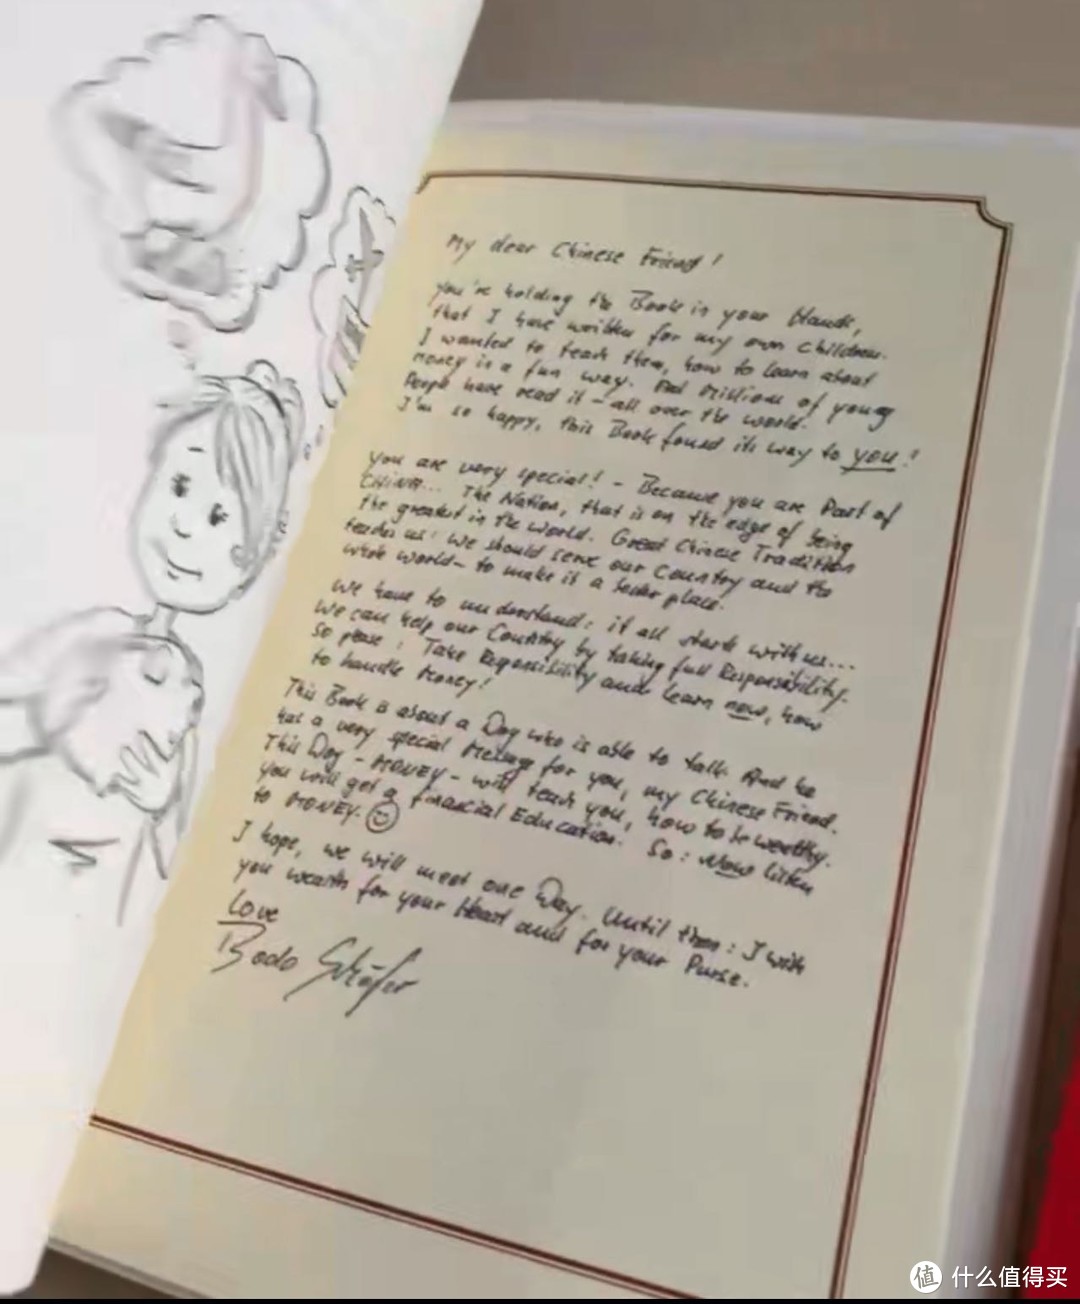 My dear Chinese Friend!
You're holding the Book in your Hands,
that I have written for my own children.
I wanted to teach them, how to learn about
money in a fun way. And Millions of young
People have read it - all over the world.
I'm so happy, this Book found its way to you!
You are very special! - Because you are Part of
CHINA... The Nation, that is on the edge of being
the greatest in the world. Great Chinese Tradition
teaches us: we should serve our Country and the
whole world - to make it a better place.
We have to understand: it all starts with us...
We can help our Country by taking full Responsibility.
So please: Take Responsibility and learn now, how
to handle Money!
This Book is about a Dog who is able to talk. And he
has a very special Message for you, my Chinese Friend.
This Dog - MONEY - will teach you, how to be wealthy.
You will get a financial Education. So: Now listen
to MONEY.
I hope, we will meet one Day. Until then: I wish
you wealth for your Heart and for your Purse.
Love
Bodo Schäfer
值 什么值得买